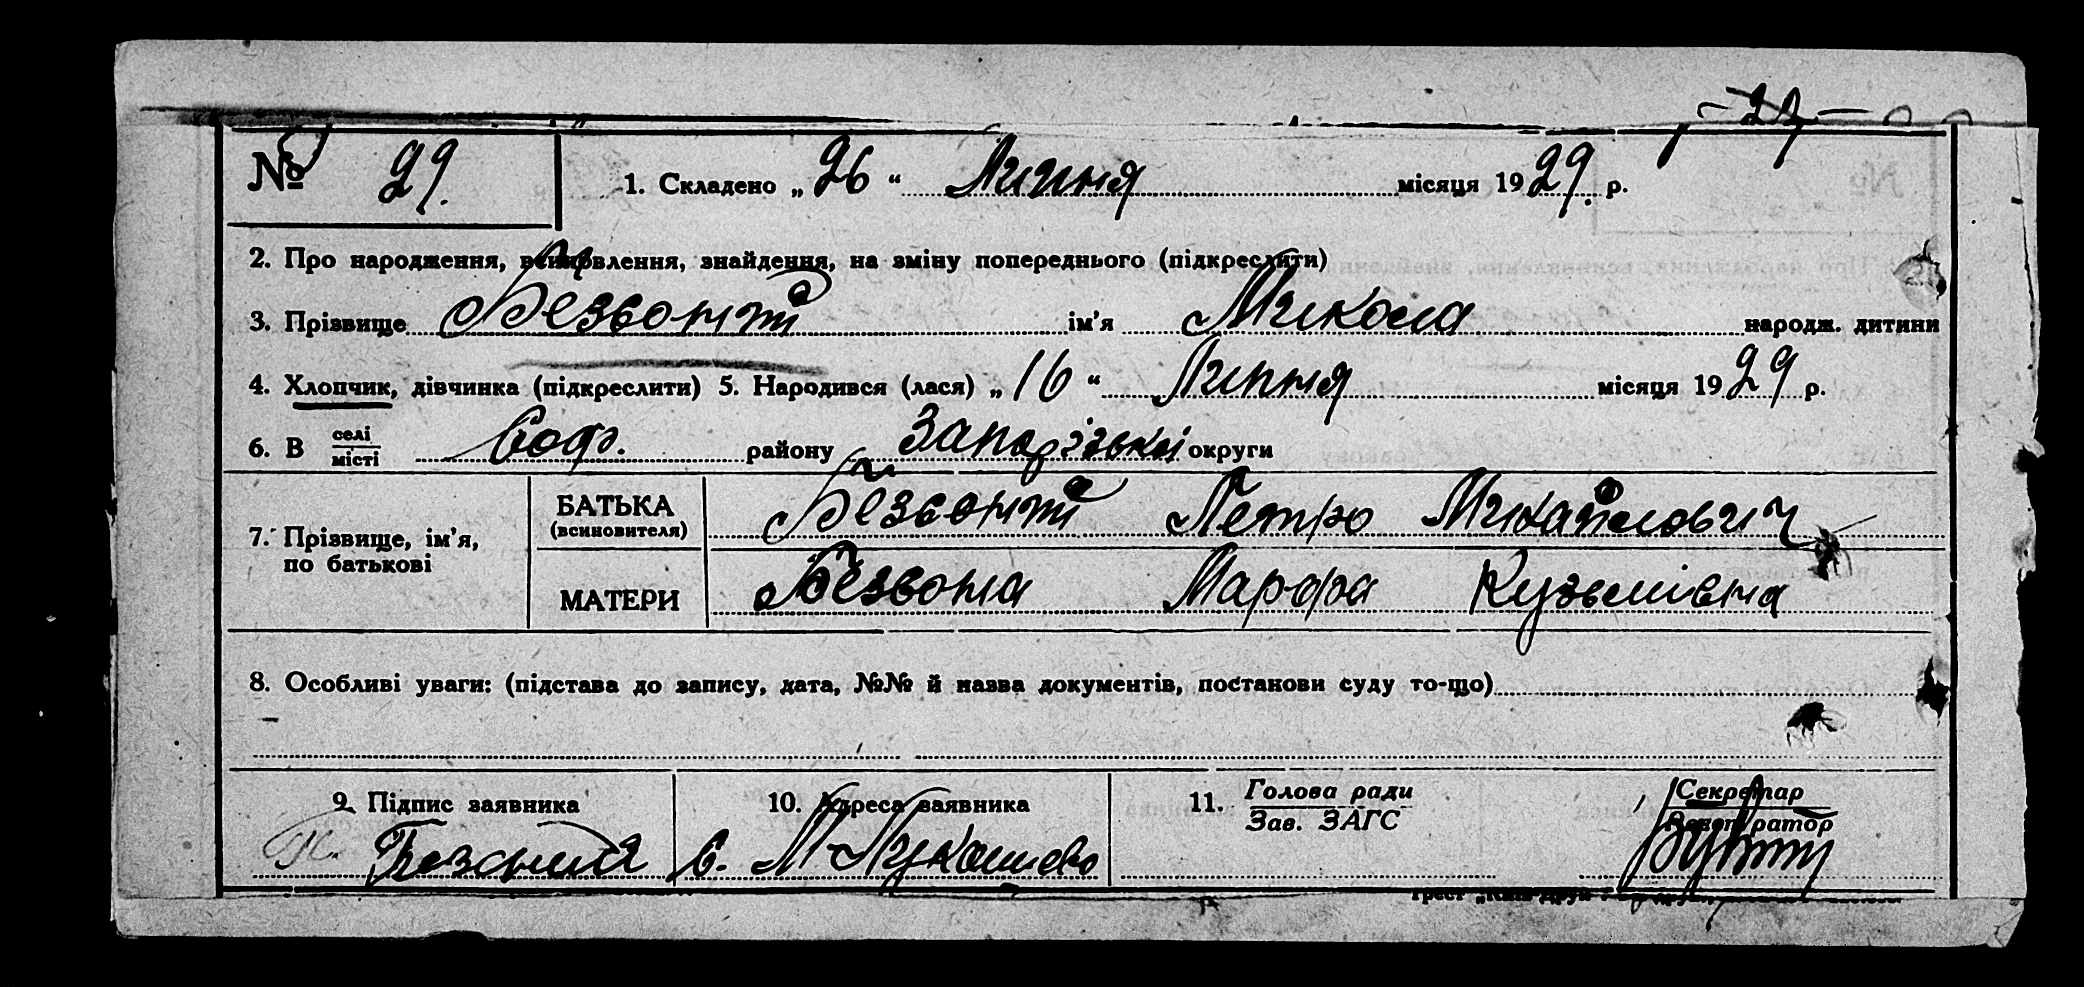 - 27 -
№ 29.
1. Складено „ 26 “ Липня місяця 1929. р.
2. Про народження, всиновлення, знайдення, на зміну попереднього (підкреслити)
3. Прізвище ім’я Микола народж. дитини
4. Хлопчик, дівчинка (підкреслити) 5. Народився (лася) „ 16 “ Липня місяця 1929 р.
6. В селі місті Соф. району Запорізької округи
7. Прізвище, ім’я, по батькові
БАТЬКА (всиновителя) Петро Михайлович
МАТЕРИ Марфа Кузьмівна
8. Особливі уваги: (підстава до запису, дата, №№ й назва документів, постанови суду то-що)
9. Підпис заявника 10. Адреса заявника 11. Голова ради Зав. ЗАГС Секретар Реєстратор
с. М-Лукашево